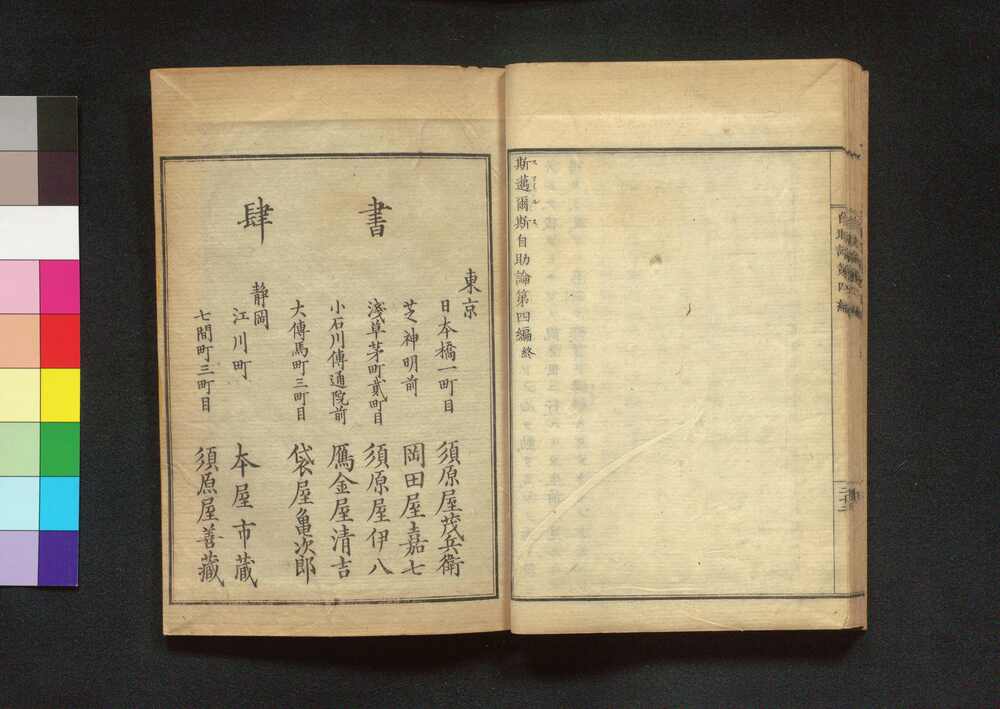 斯邁爾斯自助論第四編終
書肆
東京
日本橋一町目 須原屋茂兵衛
芝神明前 岡田屋嘉七
淺草茅町貳町目 須原屋伊八
小石川傳通院前 鴈金屋清吉
大傳馬町三町目 袋屋亀次郎
静岡
江川町 本屋市蔵
七間町三町目 須原屋善蔵